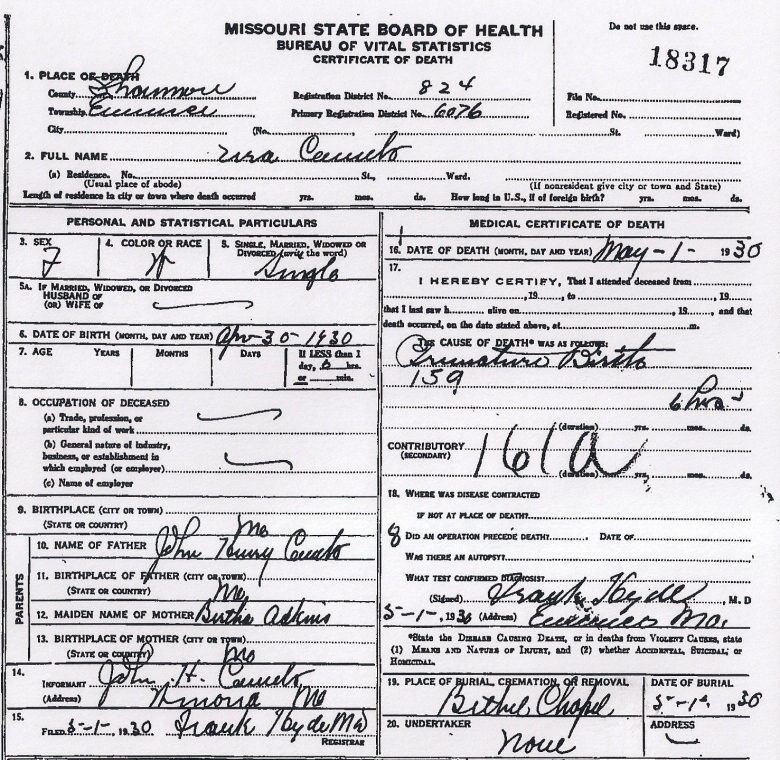 MISSOURI STATE BOARD OF HEALTH
BUREAU OF VITAL STATISTICS
CERTIFICATE OF DEATH
Do not use this space.
18317
1. PLACE OF DEATH
County Shannon Registration District No. 824 File No.
Township Eminence Primary Registration District No. 6076 Registered No.
City (No. St. Ward)
2. FULL NAME
(a) Residence. No. St., Ward.
(Usual place of abode) (If nonresident give city or town and State)
Length of residence in city or town where death occurred yrs. mos. ds. How long in U.S., if of foreign birth? yrs. mos. ds.
PERSONAL AND STATISTICAL PARTICULARS
3. SEX 4. COLOR OR RACE 5. SINGLE, MARRIED, WIDOWED OR
DIVORCED (write the word)
F W Single
5A. IF MARRIED, WIDOWED, OR DIVORCED
HUSBAND OF
(OR) WIFE OF
6. DATE OF BIRTH (MONTH, DAY AND YEAR) Apr-30-1930
7. AGE YEARS MONTHS DAYS If LESS than 1
day, 6 hrs.
or min.
8. OCCUPATION OF DECEASED
(a) Trade, profession, or
particular kind of work
(b) General nature of industry,
business, or establishment in
which employed (or employer)
(c) Name of employer
9. BIRTHPLACE (CITY OR TOWN)
(STATE OR COUNTRY) Mo
PARENTS
10. NAME OF FATHER John Henry
11. BIRTHPLACE OF FATHER (CITY OR TOWN)
(STATE OR COUNTRY) Mo
12. MAIDEN NAME OF MOTHER Bertha Adkins
13. BIRTHPLACE OF MOTHER (CITY OR TOWN)
(STATE OR COUNTRY) Mo
14.
INFORMANT John H.
(Address) Mo
15.
FILED 5-1-, 1930 Frank Hyde MD
REGISTRAR
MEDICAL CERTIFICATE OF DEATH
16. DATE OF DEATH (MONTH, DAY AND YEAR) May-1- 1930
17.
I HEREBY CERTIFY, That I attended deceased from
, 19, to, 19
that I last saw h alive on, 19, and that
death occurred, on the date stated above, at m.
THE CAUSE OF DEATH* WAS AS FOLLOWS:
Premature Birth
159
6 hrs
(duration) yrs. mos. ds.
CONTRIBUTORY 161a
(SECONDARY)
(duration) yrs. mos. ds.
18. WHERE WAS DISEASE CONTRACTED
IF NOT AT PLACE OF DEATH?
8 DID AN OPERATION PRECEDE DEATH? DATE OF
WAS THERE AN AUTOPSY?
WHAT TEST CONFIRMED DIAGNOSIS?
(Signed) Frank Hyde, M. D
5-1-, 1930 (Address) Eminence Mo.
*State the DISEASE CAUSING DEATH, or in deaths from VIOLENT CAUSES, state
(1) MEANS AND NATURE OF INJURY, and (2) whether ACCIDENTAL, SUICIDAL, or
HOMICIDAL.
19. PLACE OF BURIAL, CREMATION, OR REMOVAL DATE OF BURIAL
Bethel Chapel 5-1- 1930
20. UNDERTAKER ADDRESS
None